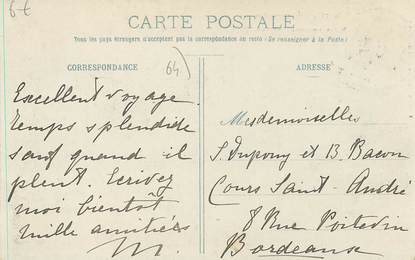 6€
CARTE POSTALE
Tous les pays étrangers n'acceptent pas la correspondance au recto (Se renseigner à la Poste)
CORRESPONDANCE
64)
ADRESSE
Excellent voyage.
Temps splendide
sauf quand il
pleut. Ecrivez
moi bientôt
mille amitiés
M.
Mesdemoiselles
S. Dupouy et B. Bacon
Cours Saint-André
8 Rue Poitevin
Bordeaux